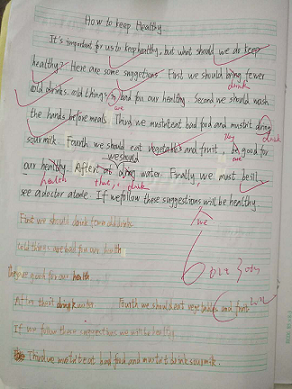 How to keep Healthy
It's important for us to keep healthy, but what should we do keep
healthy? Here are some suggestions. First we should bring fewer
drink
cold drinks. cold things is bad for our healthy. Second we should wash
are
the hands before meals. Third we mustn't eat bad food and mustn't dring
drink
sour milk. Fourth we should eat vegetables and fruit. be good for
they
are
our healthy. After dring water. Finally we must be ill
we should
health
that, drink
see a doctor at once. If we follow these suggestions will be healthy.
we
First we should drink fewer cold drinks
Cold things are bad for our health
They are good for our health
After that drink water Fourth we should eat vegetables and fruit
If we follow these suggestions we will be healthy
Third we mustn't eat bad food and mustn't drink sour milk.